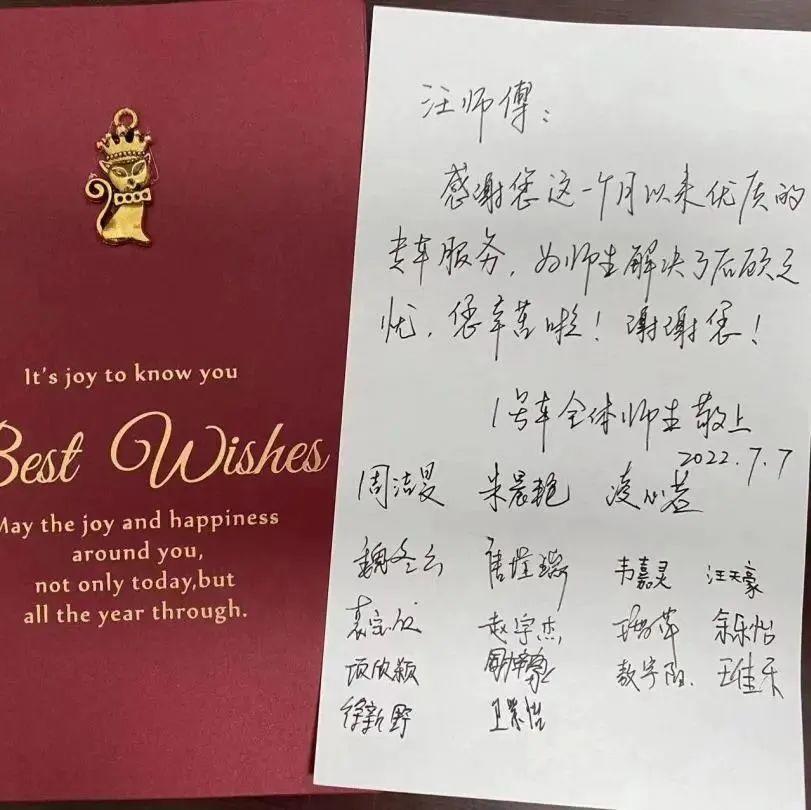 It's joy to know you
Best Wishes
May the joy and happiness
around you,
not only today,but
all the year through.
汪师傅：
感谢您这一个月以来优质的
专车服务，为师生解决了后顾之
忧，您辛苦啦！谢谢您！
1号车全体师生敬上
2022.7.7
周洁旻 朱晨艳 凌心芸
魏冬云 韦嘉灵 汪天豪
赵宇杰 余乐怡
项欣颖 王佳乐
徐新野